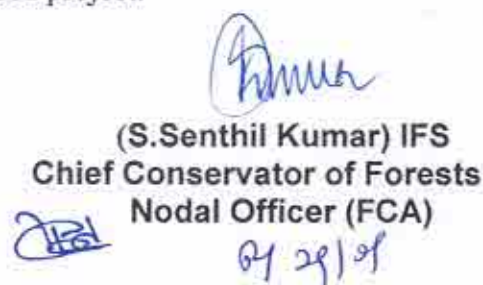 (S.Senthil Kumar) IFS
Chief Conservator of Forests
Nodal Officer (FCA)